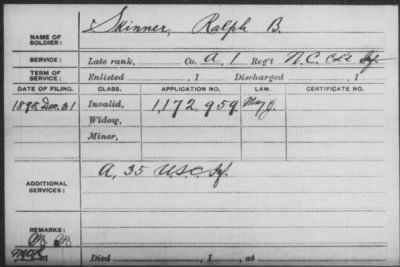 NAME OF SOLDIER: Skinner, Ralph B.
SERVICE: Late rank, Co. A, 1 Reg't N.C. Col'd Inf.
TERM OF SERVICE: Enlisted , 1 Discharged , 1
DATE OF FILING. CLASS. APPLICATION NO. LAW. CERTIFICATE NO.
1895 Dec. 31 Invalid, 1,172,959
Widow,
Minor,
A, 35 U.S.C. Inf.
ADDITIONAL SERVICES:
REMARKS:
Died , 1 , at